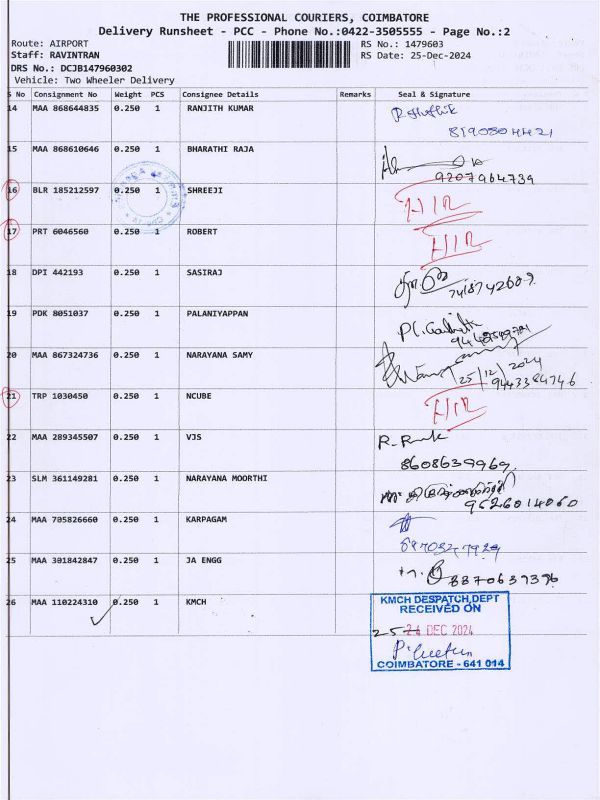 THE PROFESSIONAL COURIERS, COIMBATORE
Delivery Runsheet - PCC - Phone No.:0422-3505555 - Page No.:2
Route: AIRPORT
RS No.: 1479603
Staff: RAVINTRAN
RS Date: 25-Dec-2024
DRS No.: DCJB147960302
Vehicle: Two Wheeler Delivery
S No Consignment No Weight PCS Consignee Details Remarks Seal & Signature
14 MAA 868644835 0.250 1 RANJITH KUMAR
15 MAA 868610646 0.250 1 BHARATHI RAJA
9207964739
16 BLR 185212597 0.250 1 SHREEJI
17 PRT 6046560 0.250 1 ROBERT
18 DPI 442193 0.250 1 SASIRAJ
19 PDK 8051037 0.250 1 PALANIYAPPAN
20 MAA 867324736 0.250 1 NARAYANA SAMY
25/12/2024
9443384746
21 TRP 1030450 0.250 1 NCUBE
22 MAA 289345507 0.250 1 VJS
8608639969
23 SLM 361149281 0.250 1 NARAYANA MOORTHI
9526014060
24 MAA 705826660 0.250 1 KARPAGAM
25 MAA 301842847 0.250 1 JA ENGG
26 MAA 110224310 0.250 1 KMCH
KMCH DESPATCH,DEPT
RECEIVED ON
25 24 DEC 2024
COIMBATORE - 641 014